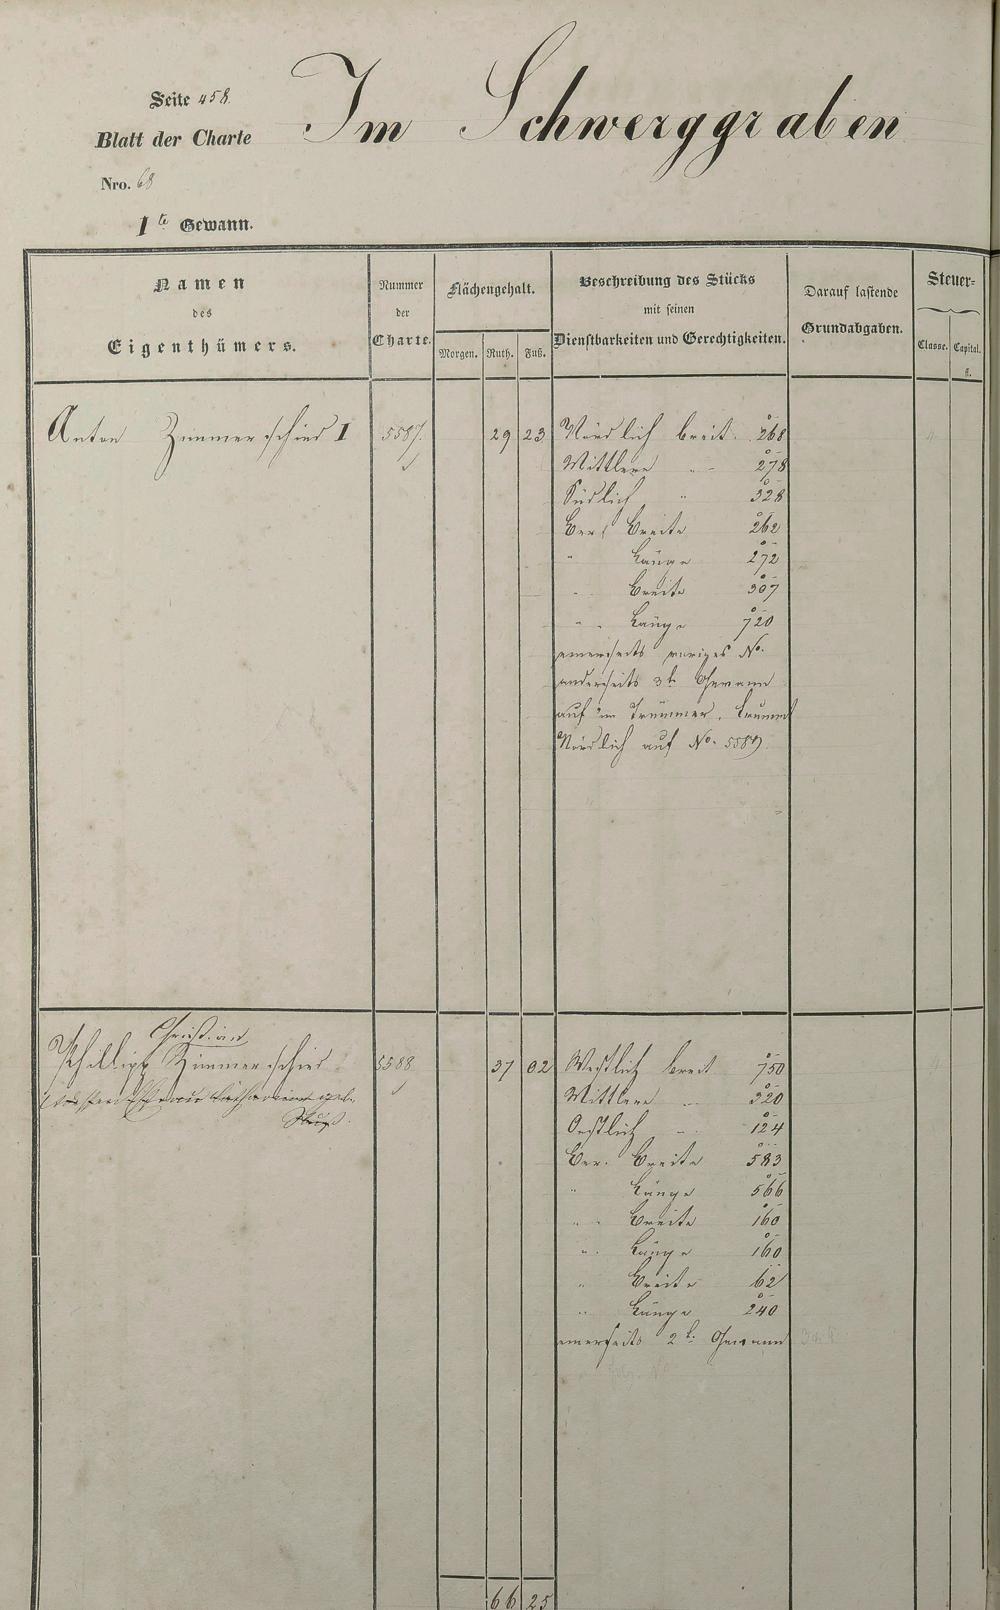 Seite 458.
Im Schwerggraben
Blatt der Charte
Nro. 68
1te Gewann.
Namen
des
Eigenthümers.
Nummer
der
Charte.
Flächengehalt.
Morgen. Ruth. Fuß.
Beschreibung des Stücks
mit seinen
Dienstbarkeiten und Gerechtigkeiten.
Darauf lastende
Grundabgaben.
Steuer-
Classe. Capital.
fl.
Anton Zimmerschied I 5587. 29 23 Nördlich breit. 268
Mittlere " 278
Südlich " 328
Ber. Breite 262
" Länge 272
" Breite 307
" Länge 720
einerseits voriges No.
anderseits 3te Gewann
auf Trümmer,
Nördlich auf No. 5589.
Christian
Philipp Zimmerschied 5588 37 02 Westlich breit 750
Mittlere " 320
Oestlich " 124
Ber. Breite 583
" Länge 566
" Breite 160
" Länge 160
" Breite 62
" Länge 240
einerseits 2te Gewann
66 25